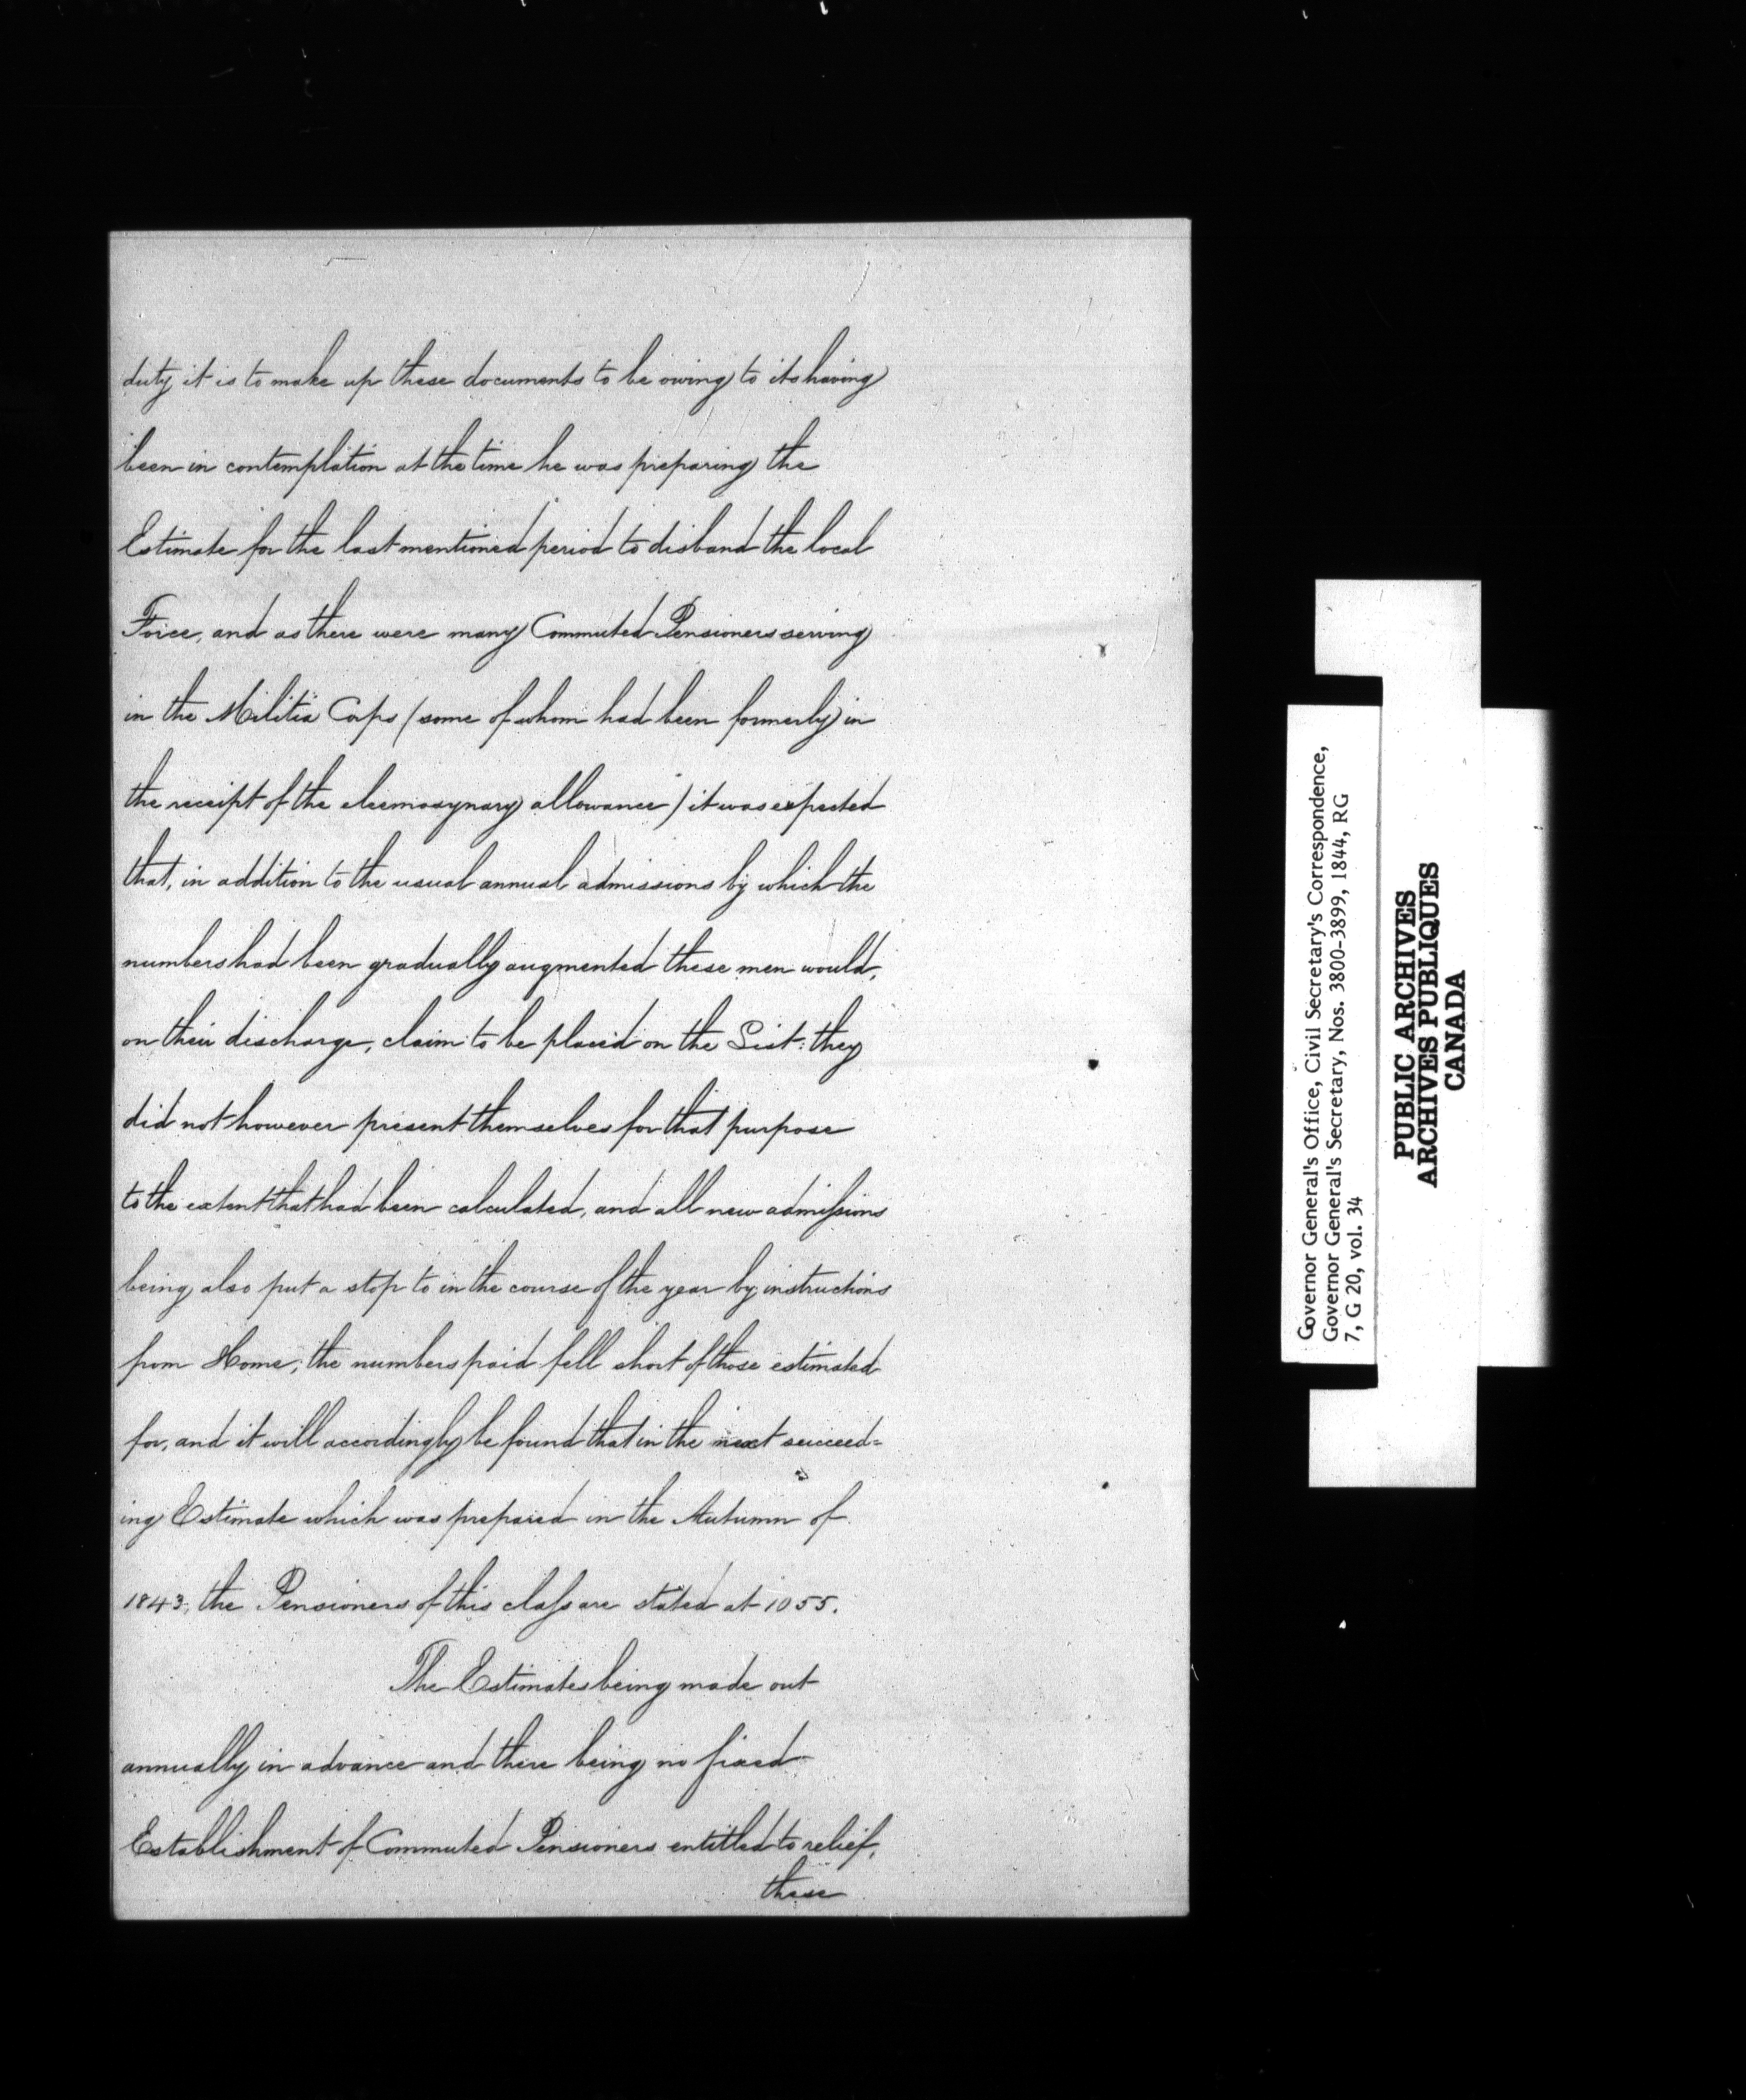 duty it is to make up these documents to be owing to its having
been in contemplation at the time he was preparing the
Estimate for the last mentioned period to disband the local
Force, and as there were many Commuted Pensioners serving
in the Militia Corps (some of whom had been formerly in
the receipt of the eleemosynary allowance) it was expected
that, in addition to the usual annual admissions by which the
numbers had been gradually augmented these men would,
on their discharge, claim to be placed on the List: they
did not however present themselves for that purpose
to the extent that had been calculated, and all new admissions
being also put a stop to in the course of the year by instructions
from Home, the numbers paid fell short of those estimated
for, and it will accordingly be found that in the next succeed=
ing Estimate which was prepared in the Autumn of
1843, the Pensioners of this class are stated at 1055.
The Estimates being made out
annually in advance and there being no fixed
Establishment of Commuted Pensioners entitled to relief,
these
Governor General's Office, Civil Secretary's Correspondence,
Governor General's Secretary, Nos. 3800-3899, 1844, RG
7, G 20, vol. 34
PUBLIC ARCHIVES
ARCHIVES PUBLIQUES
CANADA